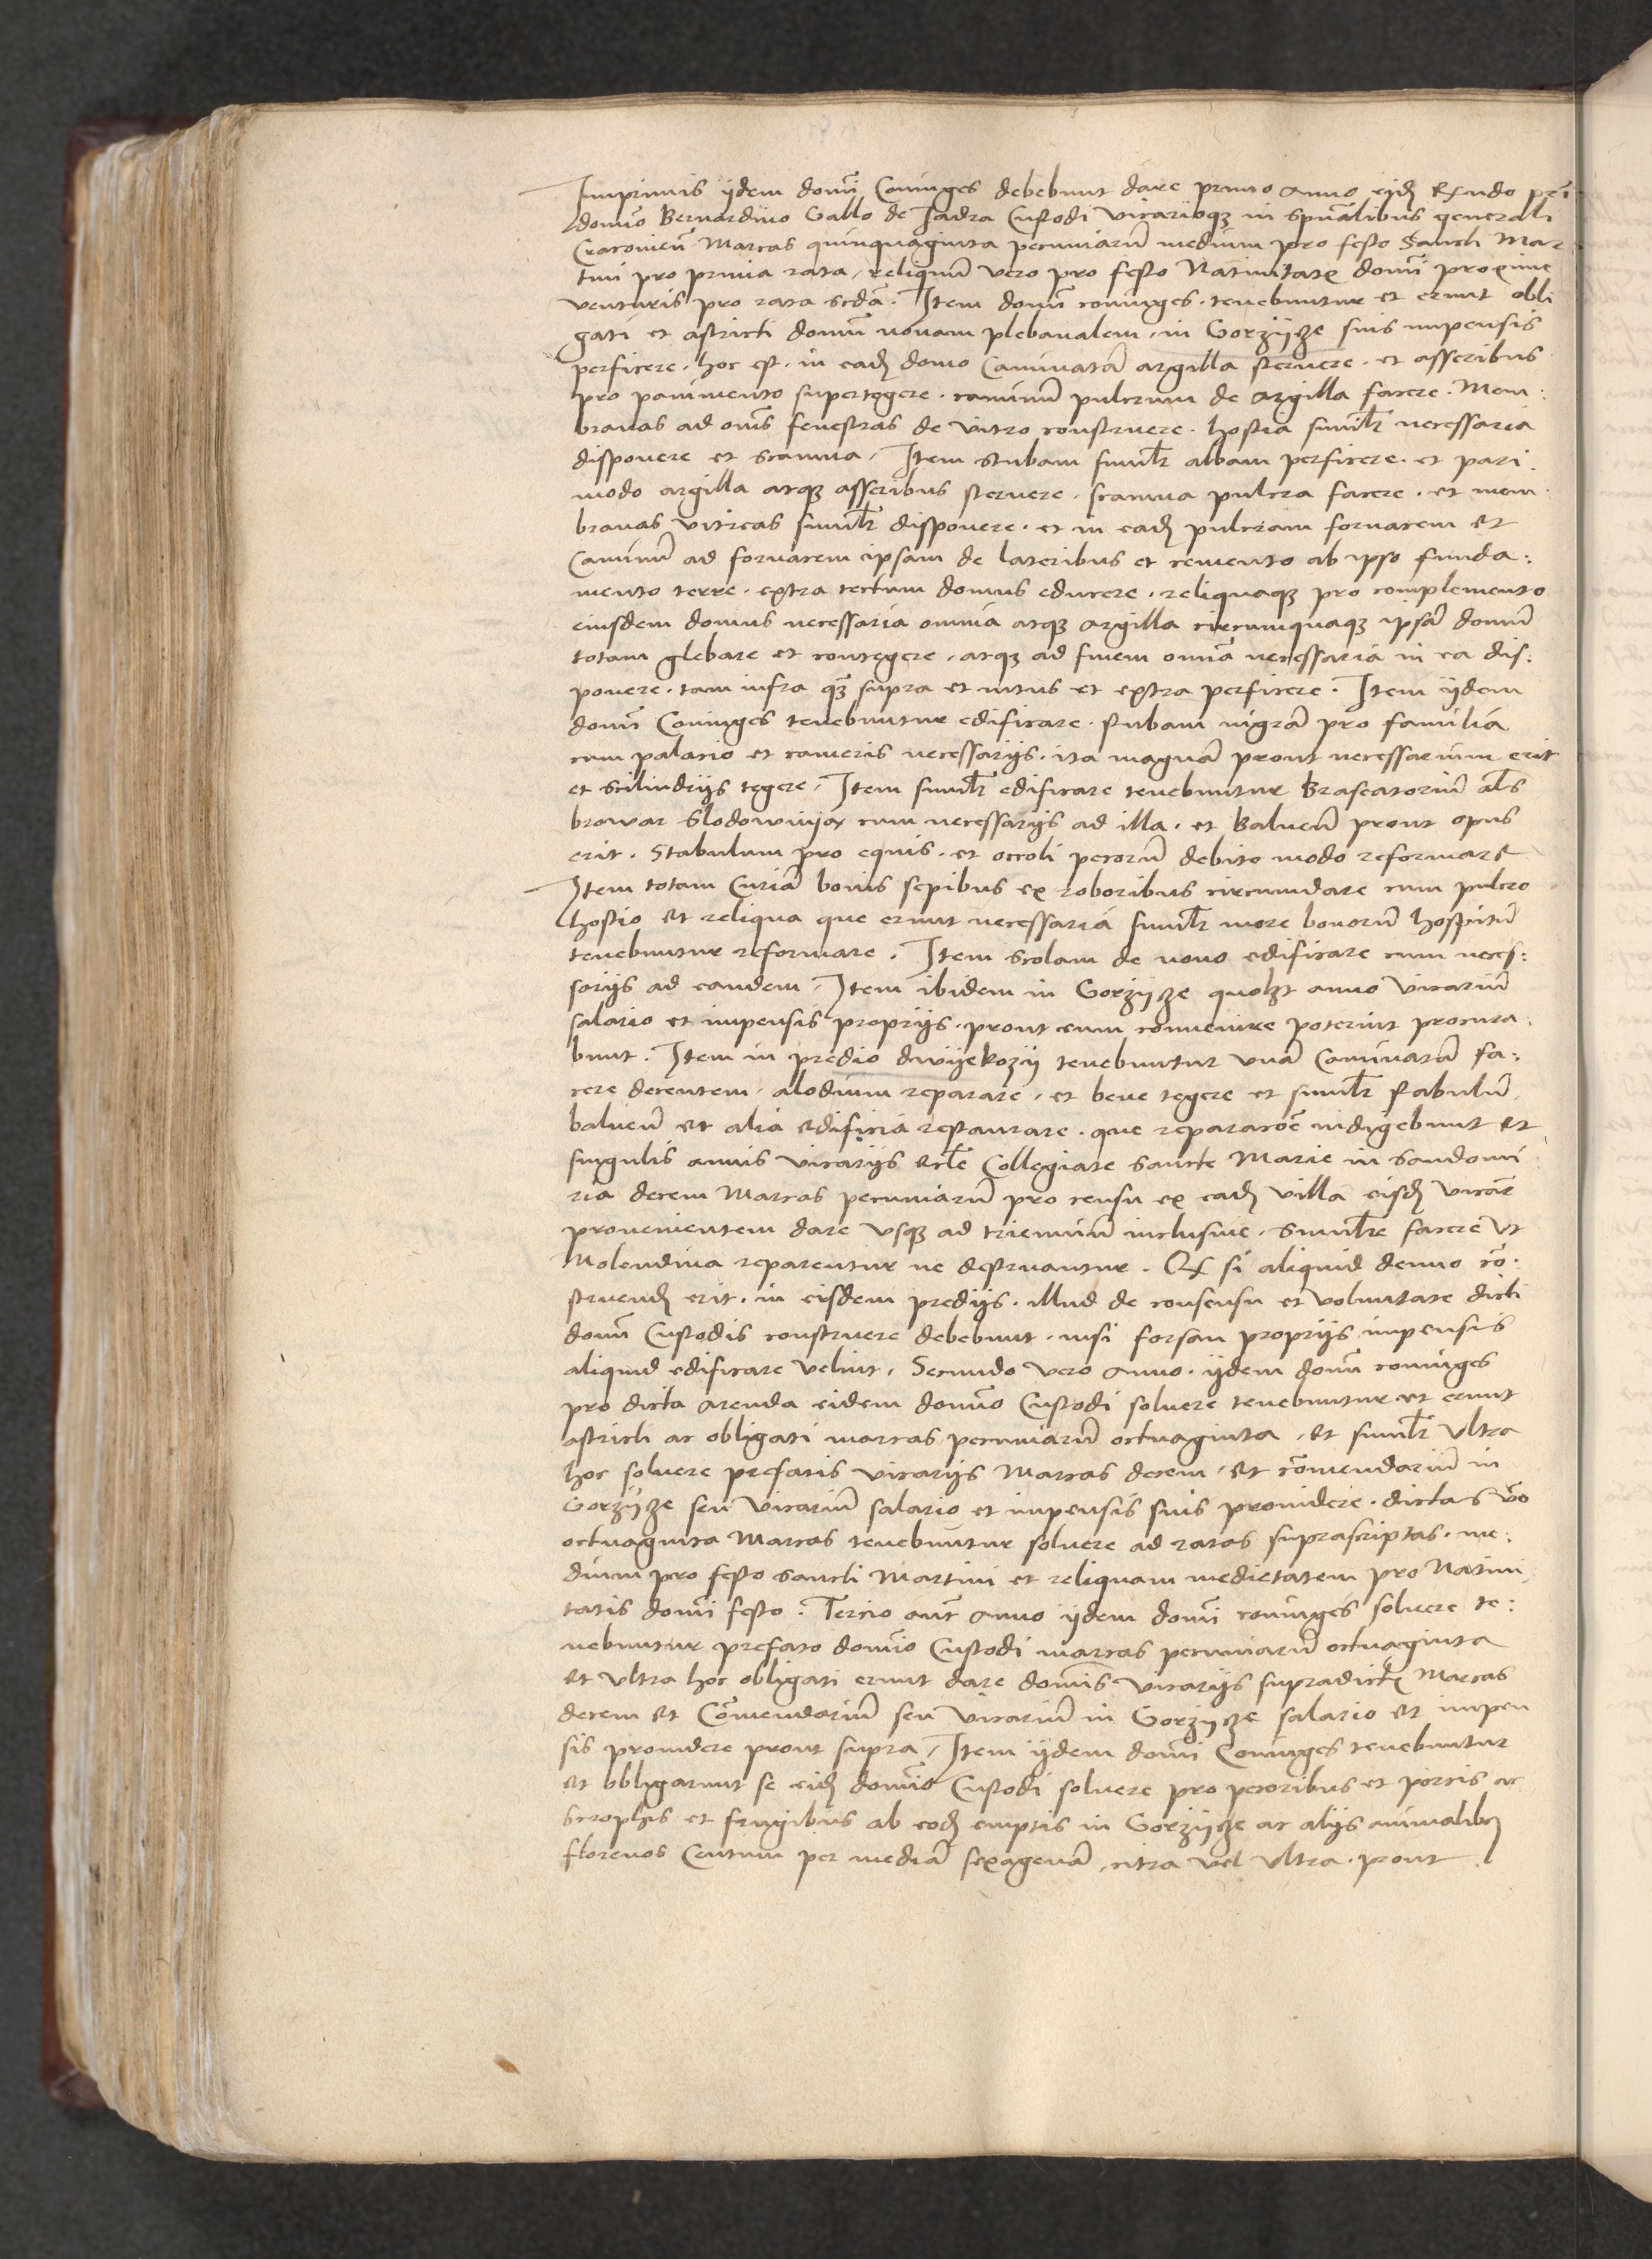 Imprimis ijdem domi Coniuges debebunt dare primo anno eidẽ Rẽndo pri
domino Bernardino Gallo de Jadra Custodi Vicarioqʒ in spũalibus generali
Cracovieñ Marcas quinquaginta pecuniarũ medium pro festo Sancti Mar
tini pro prima rata, reliquũ vero pro festo Natiuitate domi proxime
venturis pro rata scdã. Item domi coniuges tenebuntur et erunt obli
gati et astricti domũ nouam plebanalem in Gorzijcze suis impensis
perficere. hoc est in eadẽ domo Caminatã argilla sternere. et asseribus
pro pauimento supertegere. caminũ pulcrum de argilla facere. Mem:
branas ad oms fenestras de vitro construere. hostia similr necessaria
disponere et scamna, Item stubam similr albam perficere. et pari
modo argilla atqʒ asseribus sternere. scamna pulcra facere. et mem
branas vitreas similr disponere. et in eadẽ pulcram fornacem et
Caminũ ad fornacem ipsam de lateribus et cemento ab ipso funda:
mento terre. extra tectum domus educere. reliquaqʒ pro complemento
eiusdem domus necessaria omnia atqʒ argilla circumquaqʒ ipsã domũ
totam glebare et contegere, atqʒ ad finem omnia necessaria in ea dis:
ponere. tam infra qʒ supra et intus et extra perficere. Item ijdem
domi Coniuges tenebuntur edificare. stubam nigrã pro familia
cum palacio et cameris necessarijs. ita magnã prout necessarium erit
et scilindrijs tegere, Item similr edificare tenebuntur Braseatoriũ als
browar slodownya cum necessarijs ad illa. et Balneũ prout opus
erit. Stabulum pro equis. et occoli pecorũ debito modo reformare
Item totam Curiã bonis sepibus ex roboribus circumdare cum pulcro
hostio et reliqua que erunt necessaria similr more bonorũ hospitũ
tenebuntur reformare. Item scolam de nouo edificare cum neces:
sarijs ad eandem, Item ibidem in Gorzijcze quolʒt anno Vicariũ
salario et impensis proprijs. prout cum conuenire poterint procura
bunt. Item in predio dwijekozij tenebuntur vnã Caminatã fa:
cere decentem. alodium reparare, et bene tegere et similr stabulũ
balneũ et alia edificia restaurare. que reparacõe indigebunt et
singulis annis vicarijs eccle Collegiate Sancte Marie in Sandomi
ria decem Marcas pecuniarũ pro censu ex eadẽ villa eisdẽ vicar
prouenientem dare vsqʒ ad trienniũ inclusiue. Similre facere vt
Molendina reparentur ne destruantur. Et si aliquid denuo cõ:
struendẽ erit. in eisdem predijs. illud de consensu et voluntate dicti
domi Custodis construere debebunt. nisi forsan proprijs impensis
aliquid edificare velint, Secundo vero anno. ijdem domi coniuges
pro dicta arenda eidem domino Custodi soluere tenebuntur et erunt
astricti ac obligati marcas pecuniarũ octuaginta, et similr vltra
hoc soluere prefatis vicarijs Marcas decem. et cõmendariũ in
Gorzijcze seu vicariũ salario et impensis suis prouidere. dictas vo
octuaginta Marcas tenebuntur soluere ad ratas suprascriptas. me:
dium pro festo sancti Martini et reliquam medietatem pro Natiui
tatis domi festo. Tercio aut anno ijdem domi coniuges soluere te:
nebuntur prefato domino Custodi marcas pecuniarũ octuaginta
et vltra hoc obligati erunt dare dominis vicarijs supradictẽ Marcas
decem et Cõmendariũ seu vicariũ in Gorzijcze salario et impen
sis prouidere prout supra, Item ijdem domi Coniuges tenebuntur
et obligarunt se eidẽ domino Custodi soluere pro pecoribus et porcis ac
scrophis et frugibus ab eodẽ emptis in Gorzijcze ac alijs animalibʒ
florenos Centum per mediã sexagenã, citra vel vltra. prout